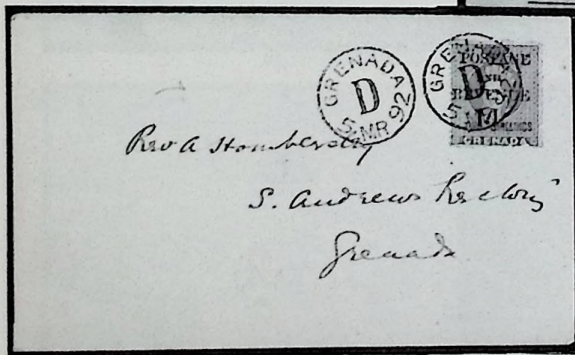 GRENADA
D
5 MR 92
GRENADA
D
5 M
POSTAGE
AND
REVENUE
GRENADA
Rev A
S. Andrews Rectory
Grenada